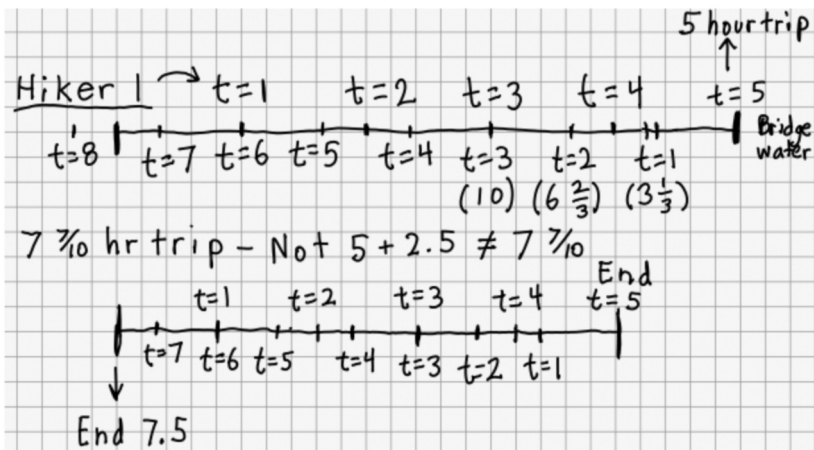 5 hour trip
Hiker 1 t=1 t=2 t=3 t=4 t=5
Bridge
water
t=8 t=7 t=6 t=5 t=4 t=3 t=2 t=1
(10) (6 2/3) (3 1/3)
7 7/10 hr trip - Not 5 + 2.5 ≠ 7 7/10
End
t=1 t=2 t=3 t=4 t=5
t=7 t=6 t=5 t=4 t=3 t=2 t=1
End 7.5